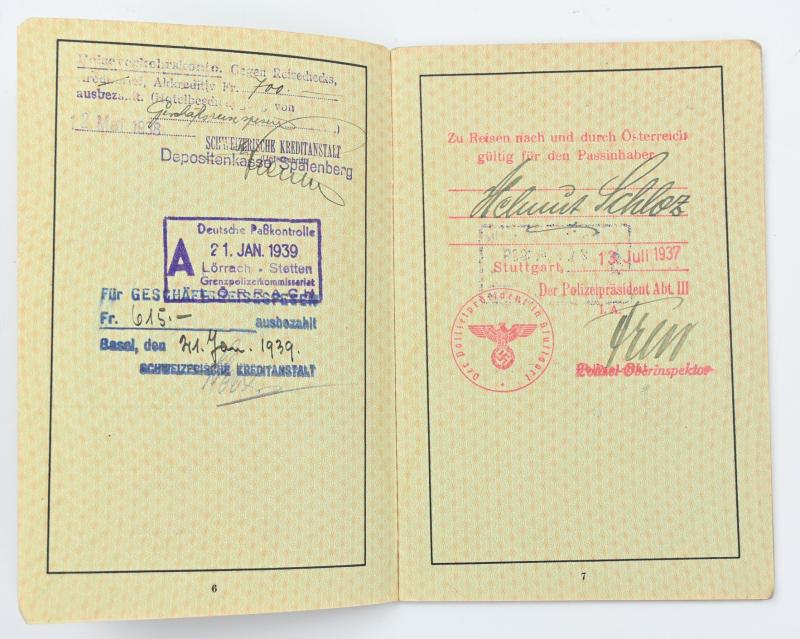 Reiseverkehrskonto. Gegen Reisechecks,
Kreditbrief, Akkreditiv Fr. 700.—
ausbezahlt. von
Geschäftsreisespesen
12 Mai 1938
SCHWEIZERISCHE KREDITANSTALT
Depositenkasse Spalenberg
Deutsche Paßkontrolle
A
21. JAN. 1939
Lörrach - Stetten
Grenzpolizeikommissariat
LÖRRACH
Für GESCHÄFTSREISESPESEN
Fr. 615.— ausbezahlt
Basel, den 21. Jan. 1939.
SCHWEIZERISCHE KREDITANSTALT
6
Zu Reisen nach und durch Österreich
gültig für den Passinhaber
Helmut Schloz
Stuttgart, 13. Juli 1937
Der Polizeipräsident Abt. III
I. A.
Der Polizeipräsident in Stuttgart
Polizei-Oberinspektor
7